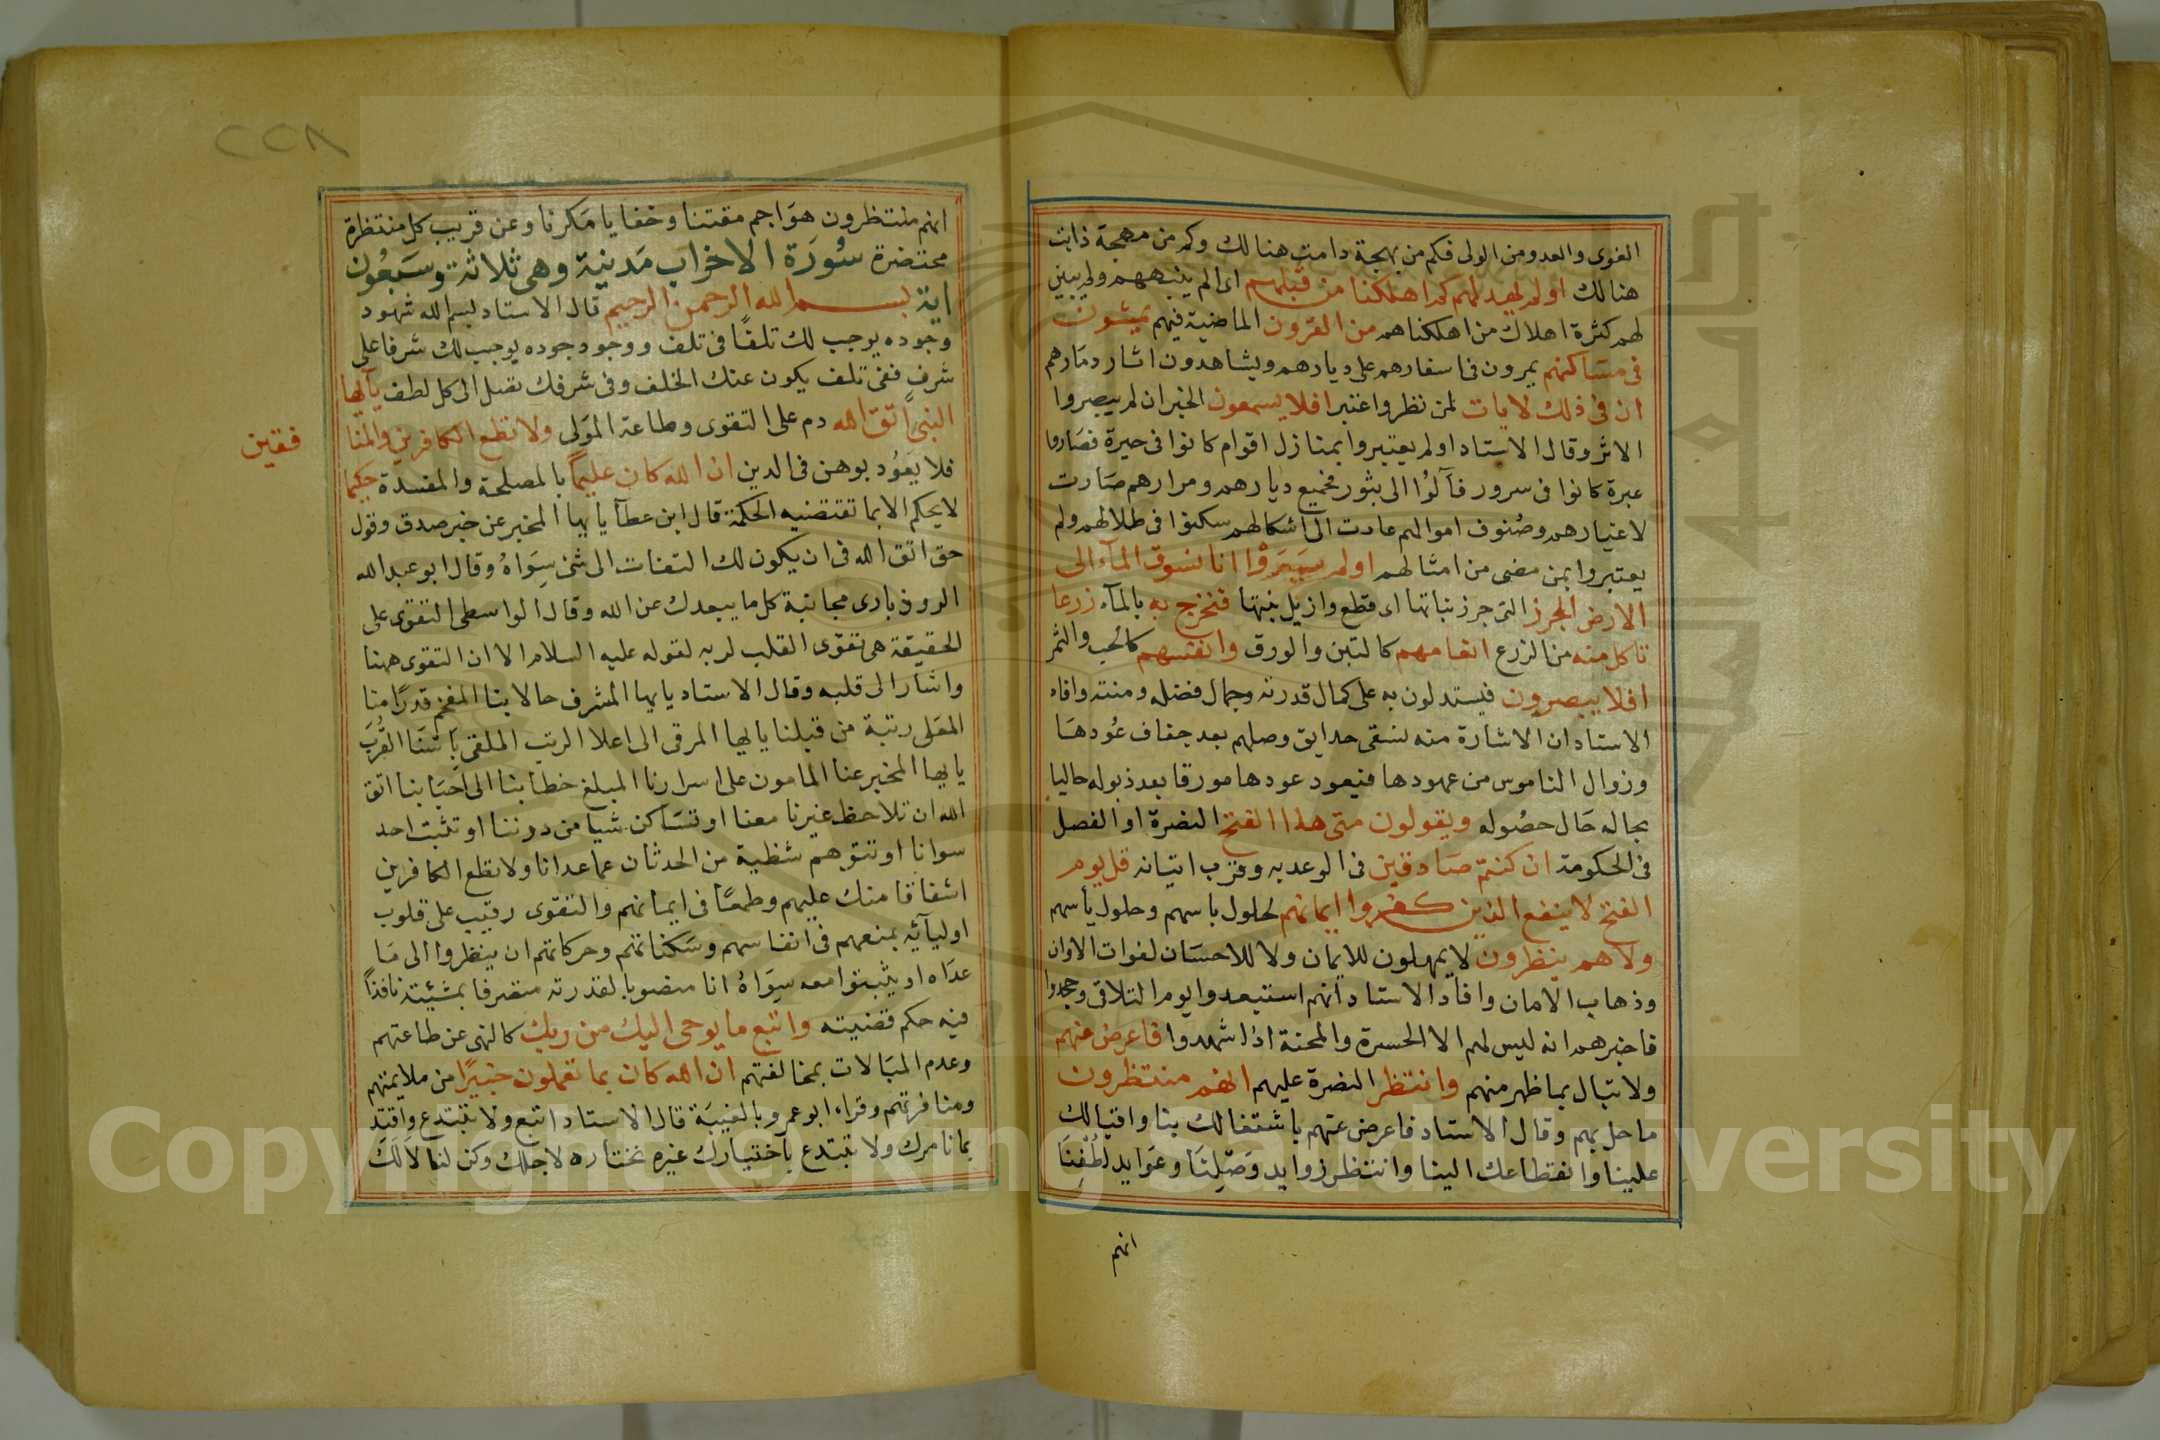 الغوى والعدو من الولى فكم من بهجة دامت هنالك وكم من مهجة ذابت
هنالك اولم يهد لهم كم اهلكنا من قبلهم اى الم ينبههم ولم يبين
لهم كثرة اهلاك من اهلكناهم من القرون الماضية فيهم يمشون
فى مساكنهم يمرون فى اسفارهم على ديارهم ويشاهدون اثار دمارهم
ان فى ذلك لايات لمن نظر واعتبر افلا يسمعون الخبر ان لم يبصروا
الاثر وقال الاستاد اولم يعتبروا بمنازل اقوام كانوا فى حيرة فصاروا
عبرة كانوا فى سرور فآلوا الى بثور فجميع ديارهم ومرارهم صارت
لاغيارهم وصنوف اموالهم عادت الى اشكالهم سكنوا فى طلالهم ولم
يعتبروا بمن مضى من امثالهم اولم يروا انا نسوق المآء الى
الارض الجرز التى جرز نباتها اى قطع وازيل نبتها فنخرج به بالمآء زرعا
تاكل منه من الزرع انعامهم كالتبن والورق وانفسهم كالحب والثمر
افلا يبصرون فيستدلون به على كمال قدرته وجمال فضله ومنته وافاد
الاستاد ان الاشارة منه نسقى حدايق وصلهم بعد جفاف عودها
وزوال الناموس من عهودها فيعود عودها مورقا بعد ذبوله حاليا
بحاله حال حصوله ويقولون متى هذا الفتح النصرة او الفصل
فى الحكومة ان كنتم صادقين فى الوعد به وقرب اتيانه قل يوم
الفتح لا ينفع الذين كفروا ايمانهم لحلول باسهم وحلول يأسهم
ولا هم ينظرون لا يمهلون للايمان ولا للاحسان لفوات الاوان
وذهاب الامان وافاد الاستاد انهم استبعدوا يوم التلاقى وجحدوا
فاخبرهم انه ليس لهم الا الحسرة والمحنة اذا شهدوا فاعرض عنهم
ولا تبال بما ظهر منهم وانتظر النصرة عليهم انهم منتظرون
ما حل بهم وقال الاستاد فاعرض عنهم باشتغالك بنا واقبالك
علينا وانقطاعك الينا وانتظر زوايد وصلنا وعوايد لطفنا
انهم
٢٢٨
انهم منتظرون هواجم مقتنا وخفايا مكرنا وعن قريب كل منتظرة
محتضرة سورة الاحزاب مدنية وهى ثلاثة وسبعون
اية بسم الله الرحمن الرحيم قال الاستاد بسم الله شهود
وجوده يوجب لك تلفا فى تلف ووجود جوده يوجب لك شرفا على
شرف ففى تلف يكون عنك الخلف وفى شرفك تقبل الى كل لطف يآيها
النبى اتق الله دم على التقوى وطاعة المولى ولا تطع الكافرين والمنا
فقين
فلا يعود بوهن فى الدين ان الله كان عليما بالمصلحة والمفسدة حكيما
لا يحكم الا بما تقتضيه الحكمة قال ابن عطآ يايها المخبر عن خبر صدق وقول
حق اتق الله فى ان يكون لك التفات الى شئ سواه وقال ابو عبد الله
الروذبارى مجانبة كل ما يبعدك عن الله وقال الواسطى التقوى على
الحقيقة هى تقوى القلب لربه لقوله عليه السلام الا ان التقوى ههنا
واشار الى قلبه وقال الاستاد يايها المشرف حالا بنا المفخم قدرا منا
المعلى رتبة من قبلنا يايها المرقى الى اعلا الرتب الملقى باسنا القرب
يايها المخبر عنا المامون على اسرارنا المبلغ خطابنا الى احبابنا اتق
الله ان تلاحظ غيرنا معنا او تساكن شيا من دوننا او تثبت احد
سوانا او تتوهم شظية من الحدثان عما عدانا ولا تطع الكافرين
اشفاقا منك عليهم وطمعا فى ايمانهم والتقوى رقيب على قلوب
اوليآئه يمنعهم فى انفاسهم وسكناتهم وحركاتهم ان ينظروا الى ما
عداه او يثبتوا معه سواه انا منصوبا لقدرته متصرفا بمشيئة نافذا
فيه حكم قضيته واتبع ما يوحى اليك من ربك كالنهى عن طاعتهم
وعدم المبالات بمخالفتهم ان الله كان بما تعملون خبيرا من ملايمتهم
ومنافرتهم وقراء ابو عمرو بالغيبة قال الاستاد اتبع ولا تبتدع واقتد
بما نامرك ولا تبتدع باختيارك غيره نختاره لاجلك وكن لنا لا لك